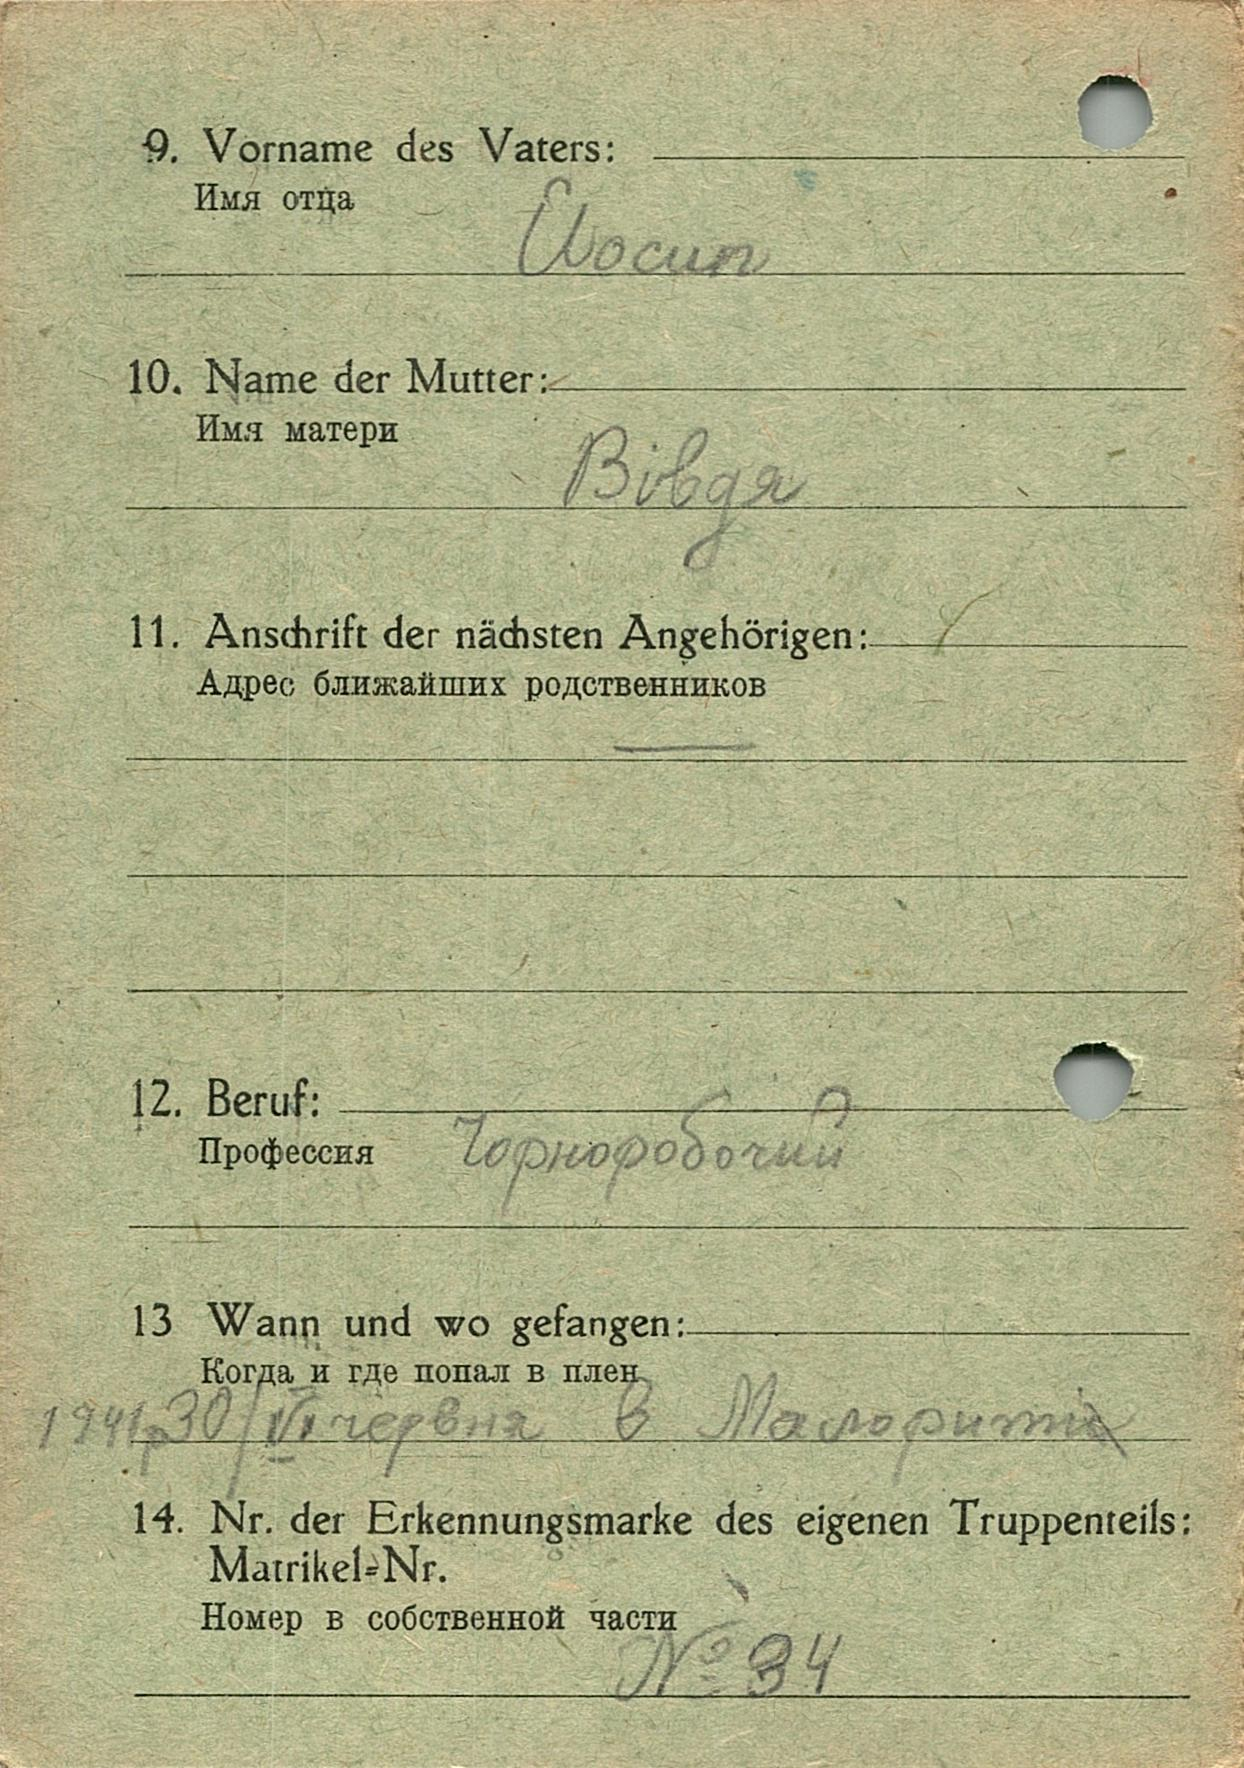 9. Vorname des Vaters:
Имя отца
Йосип
10. Name der Mutter:
Имя матери
Вівдя
11. Anschrift der nächsten Angehörigen:
Адрес ближайших родственников
—
12. Beruf:
Профессия
Чорноробочий
13 Wann und wo gefangen:
Когда и где попал в плен
1941р 30/VI червня в Малорити
14. Nr. der Erkennungsmarke des eigenen Truppenteils:
Matrikel-Nr.
Номер в собственной части
№ 34